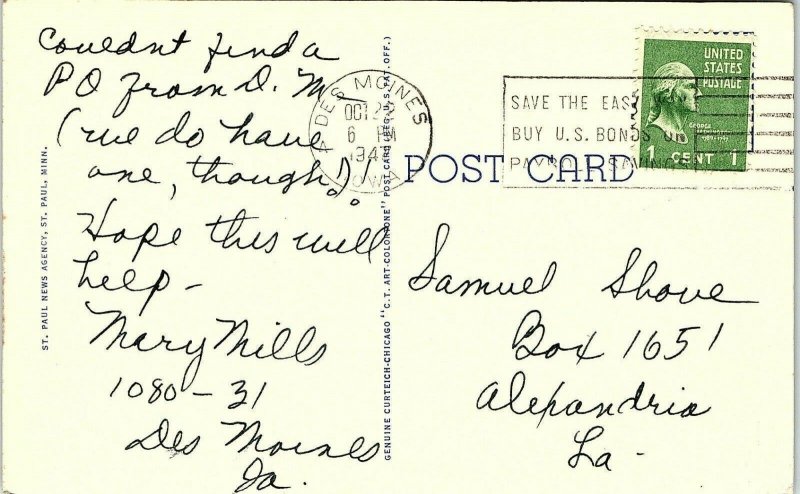 Couldnt find a
PO from D. M.
(we do have
one, though!)
Hope this will
help -
Mary Mills
1080 - 31
Des Moines
Ia.
ST. PAUL NEWS AGENCY, ST. PAUL, MINN.
GENUINE CURTEICH-CHICAGO "C.T. ART-COLORTONE" POST CARD (REG. U.S. PAT. OFF.)
DES MOINES
OCT
6 PM
IOWA
SAVE THE EASY WAY
BUY U.S. BONDS ON
PAYROLL SAVINGS
UNITED
STATES
POSTAGE
GEORGE
1 CENT 1
POST CARD
Samuel Shove
Box 1651
Alexandria
La -